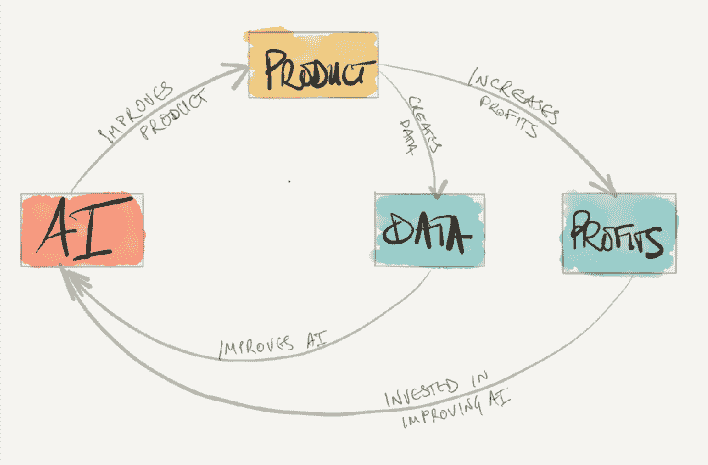 PRODUCT
IMPROVES
PRODUCT
CREATES
DATA
INCREASES
PROFITS
AI
DATA
PROFITS
IMPROVES AI
INVESTED IN
IMPROVING AI